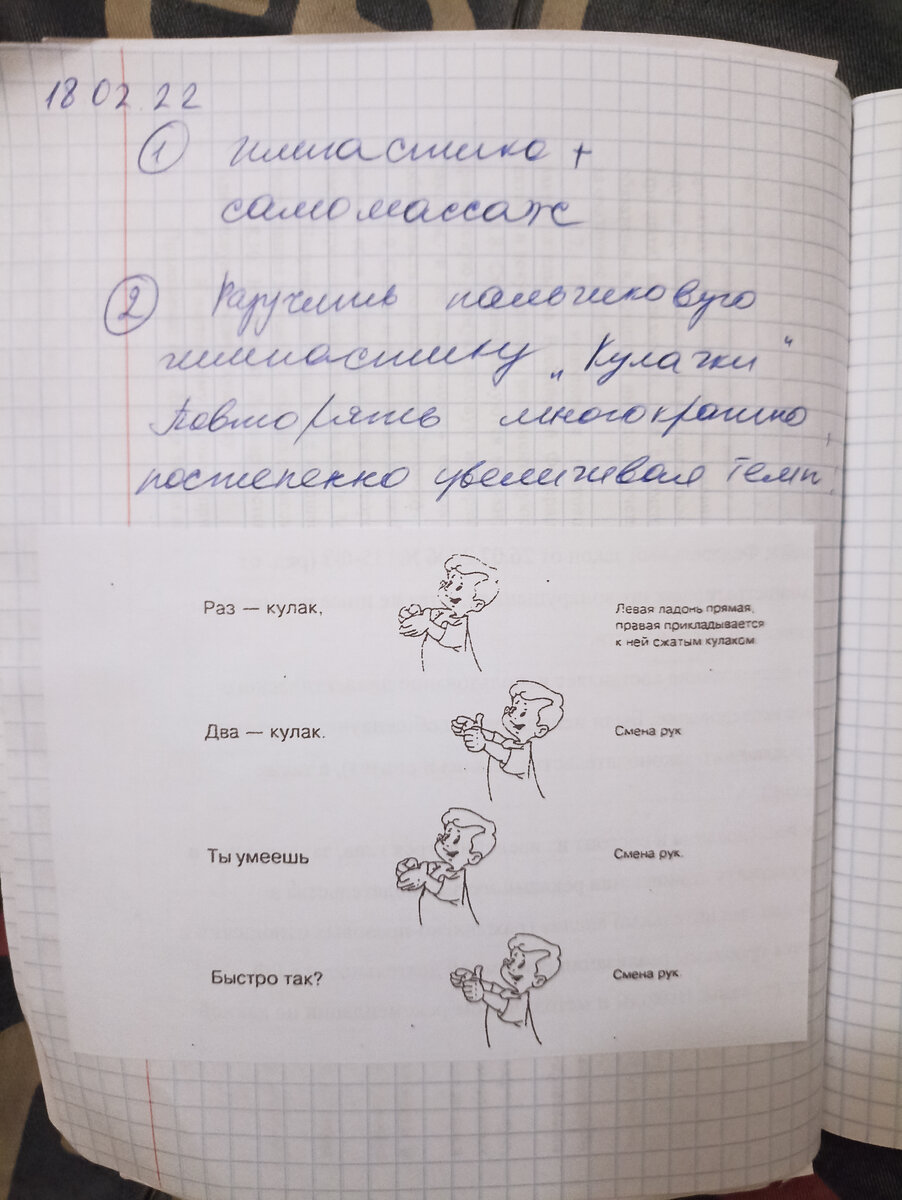 18 02 22
① гимнастика +
самомассаж
② Разучить пальчиковую
гимнастику „Кулачки"
Повторять многократно,
постепенно увеличивая темп.
Раз — кулак,
Левая ладонь прямая,
правая прикладывается
к ней сжатым кулаком
Два — кулак.
Смена рук
Ты умеешь
Смена рук.
Быстро так?
Смена рук.